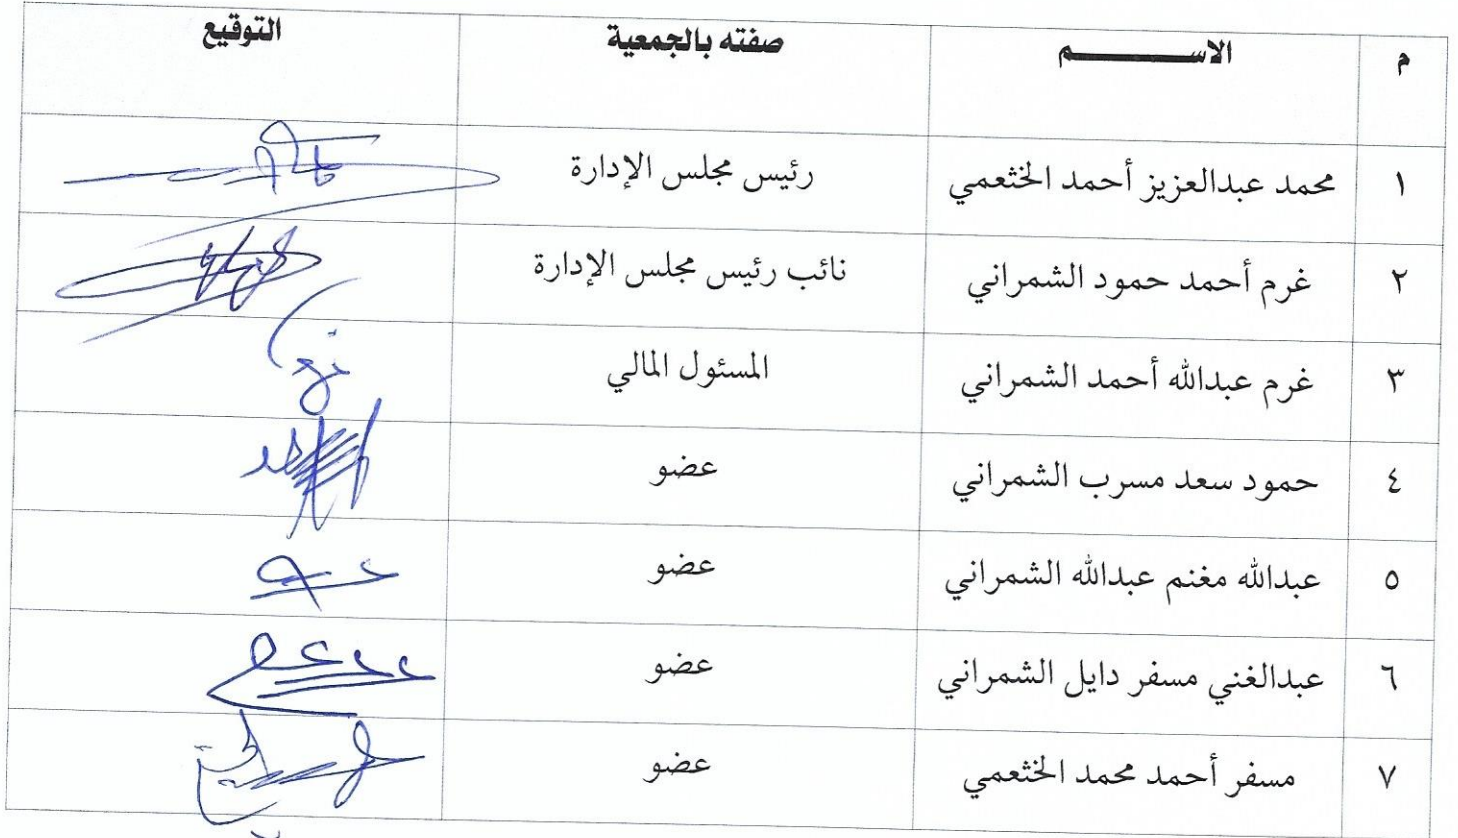 م الاســـــــــم صفته بالجمعية التوقيع
١ محمد عبدالعزيز أحمد الخثعمي رئيس مجلس الإدارة
٢ غرم أحمد حمود الشمراني نائب رئيس مجلس الإدارة
٣ غرم عبدالله أحمد الشمراني المسئول المالي
٤ حمود سعد مسرب الشمراني عضو
٥ عبدالله مغنم عبدالله الشمراني عضو
٦ عبدالغني مسفر دايل الشمراني عضو
٧ مسفر أحمد محمد الخثعمي عضو